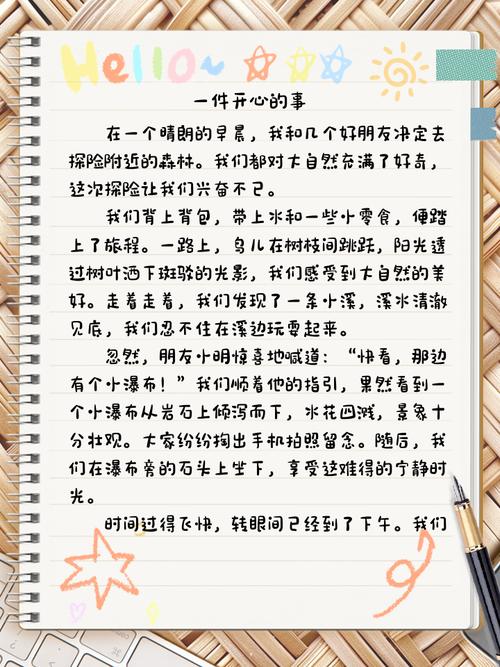 Hello~
一件开心的事
在一个晴朗的早晨，我和几个好朋友决定去
探险附近的森林。我们都对大自然充满了好奇，
这次探险让我们兴奋不已。
我们背上背包，带上水和一些小零食，便踏
上了旅程。一路上，鸟儿在树枝间跳跃，阳光透
过树叶洒下斑驳的光影，我们感受到大自然的美
好。走着走着，我们发现了一条小溪，溪水清澈
见底，我们忍不住在溪边玩耍起来。
忽然，朋友小明惊喜地喊道：“快看，那边
有个小瀑布！”我们顺着他的指引，果然看到一
个小瀑布从岩石上倾泻而下，水花四溅，景象十
分壮观。大家纷纷掏出手机拍照留念。随后，我
们在瀑布旁的石头上坐下，享受这难得的宁静时
光。
时间过得飞快，转眼间已经到了下午。我们